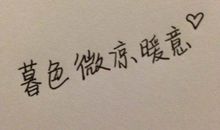 暮色微凉暖意♡